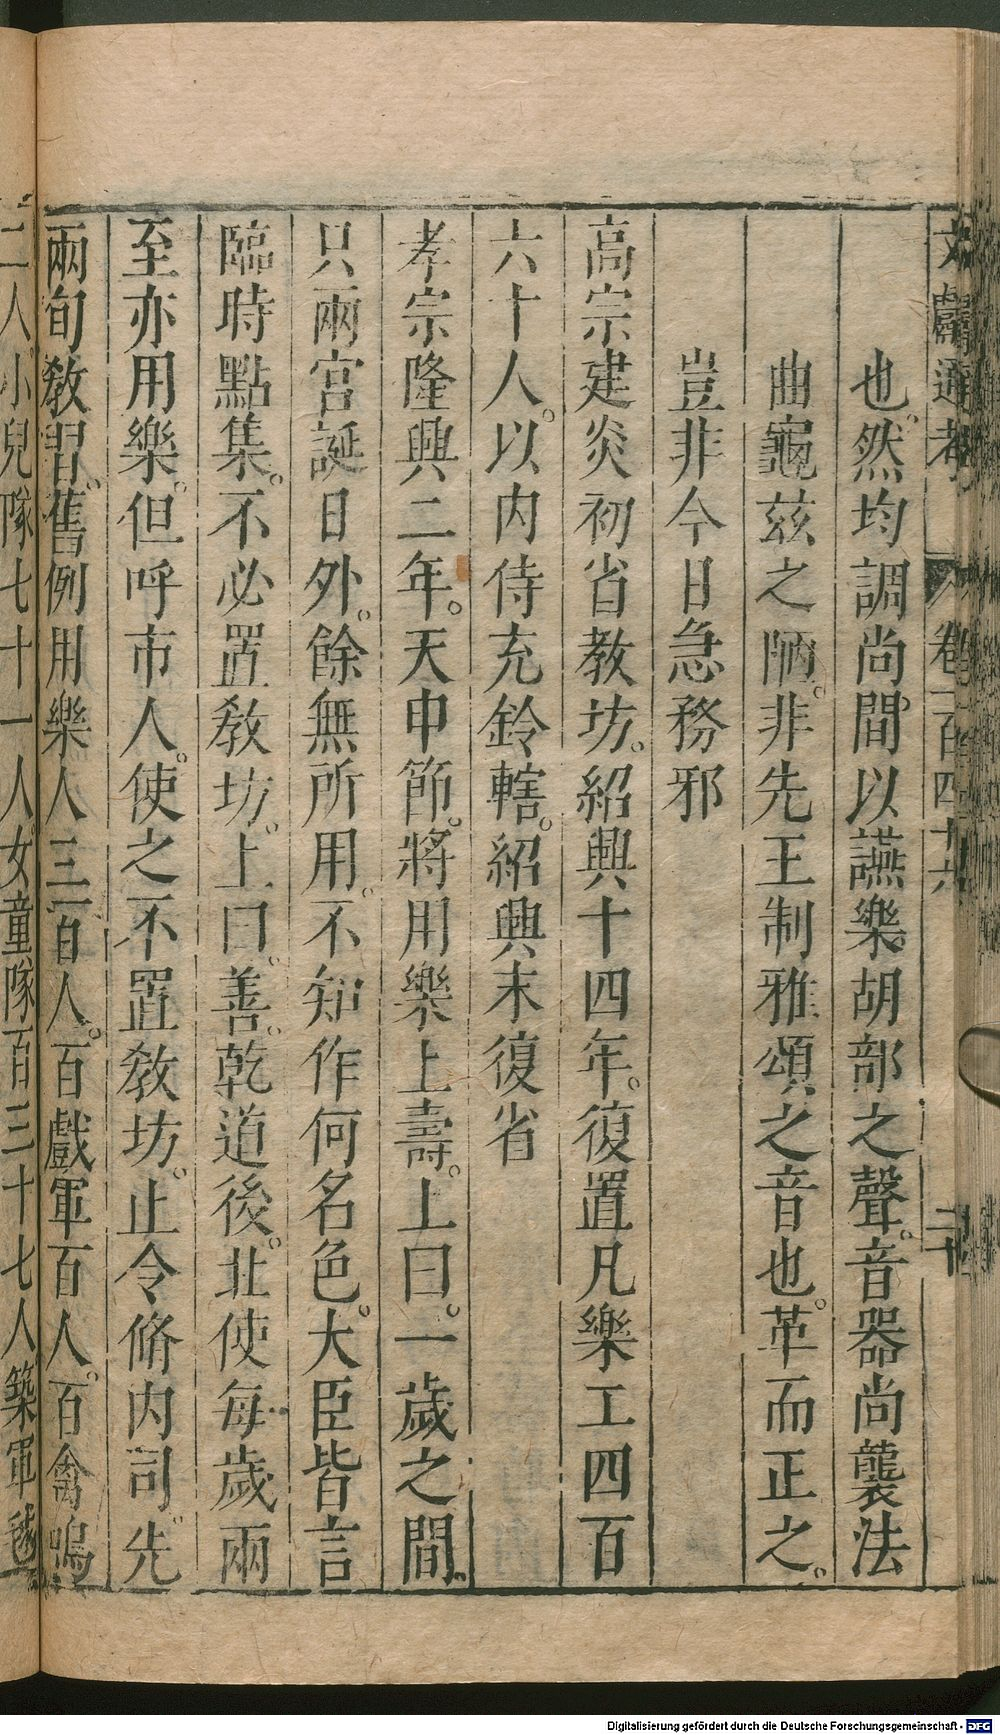 文獻通考
卷一百四十六
二十
也。然均調尚間以讌樂胡部之聲。音器尚襲法
曲龜玆之陋。非先王制雅頌之音也。革而正之。
豈非今日急務邪
高宗建炎初省教坊。紹興十四年。復置凡樂工四百
六十人。以内侍充鈴轄。紹興末復省
孝宗隆興二年。天申節。將用樂上壽。上曰。一歲之間。
只兩宮誕日外。餘無所用。不知作何名色。大臣皆言
臨時點集。不必置教坊。上曰。善。乾道後。北使每歲兩
至亦用樂。但呼市人。使之不置教坊。止令脩内司。先
兩旬教習。舊例用樂人三百人。百戲軍百人。百禽鳴
二人小兒隊七十一人女童隊百三十七人築軍毬
Digitalisierung gefördert durch die Deutsche Forschungsgemeinschaft - DFG